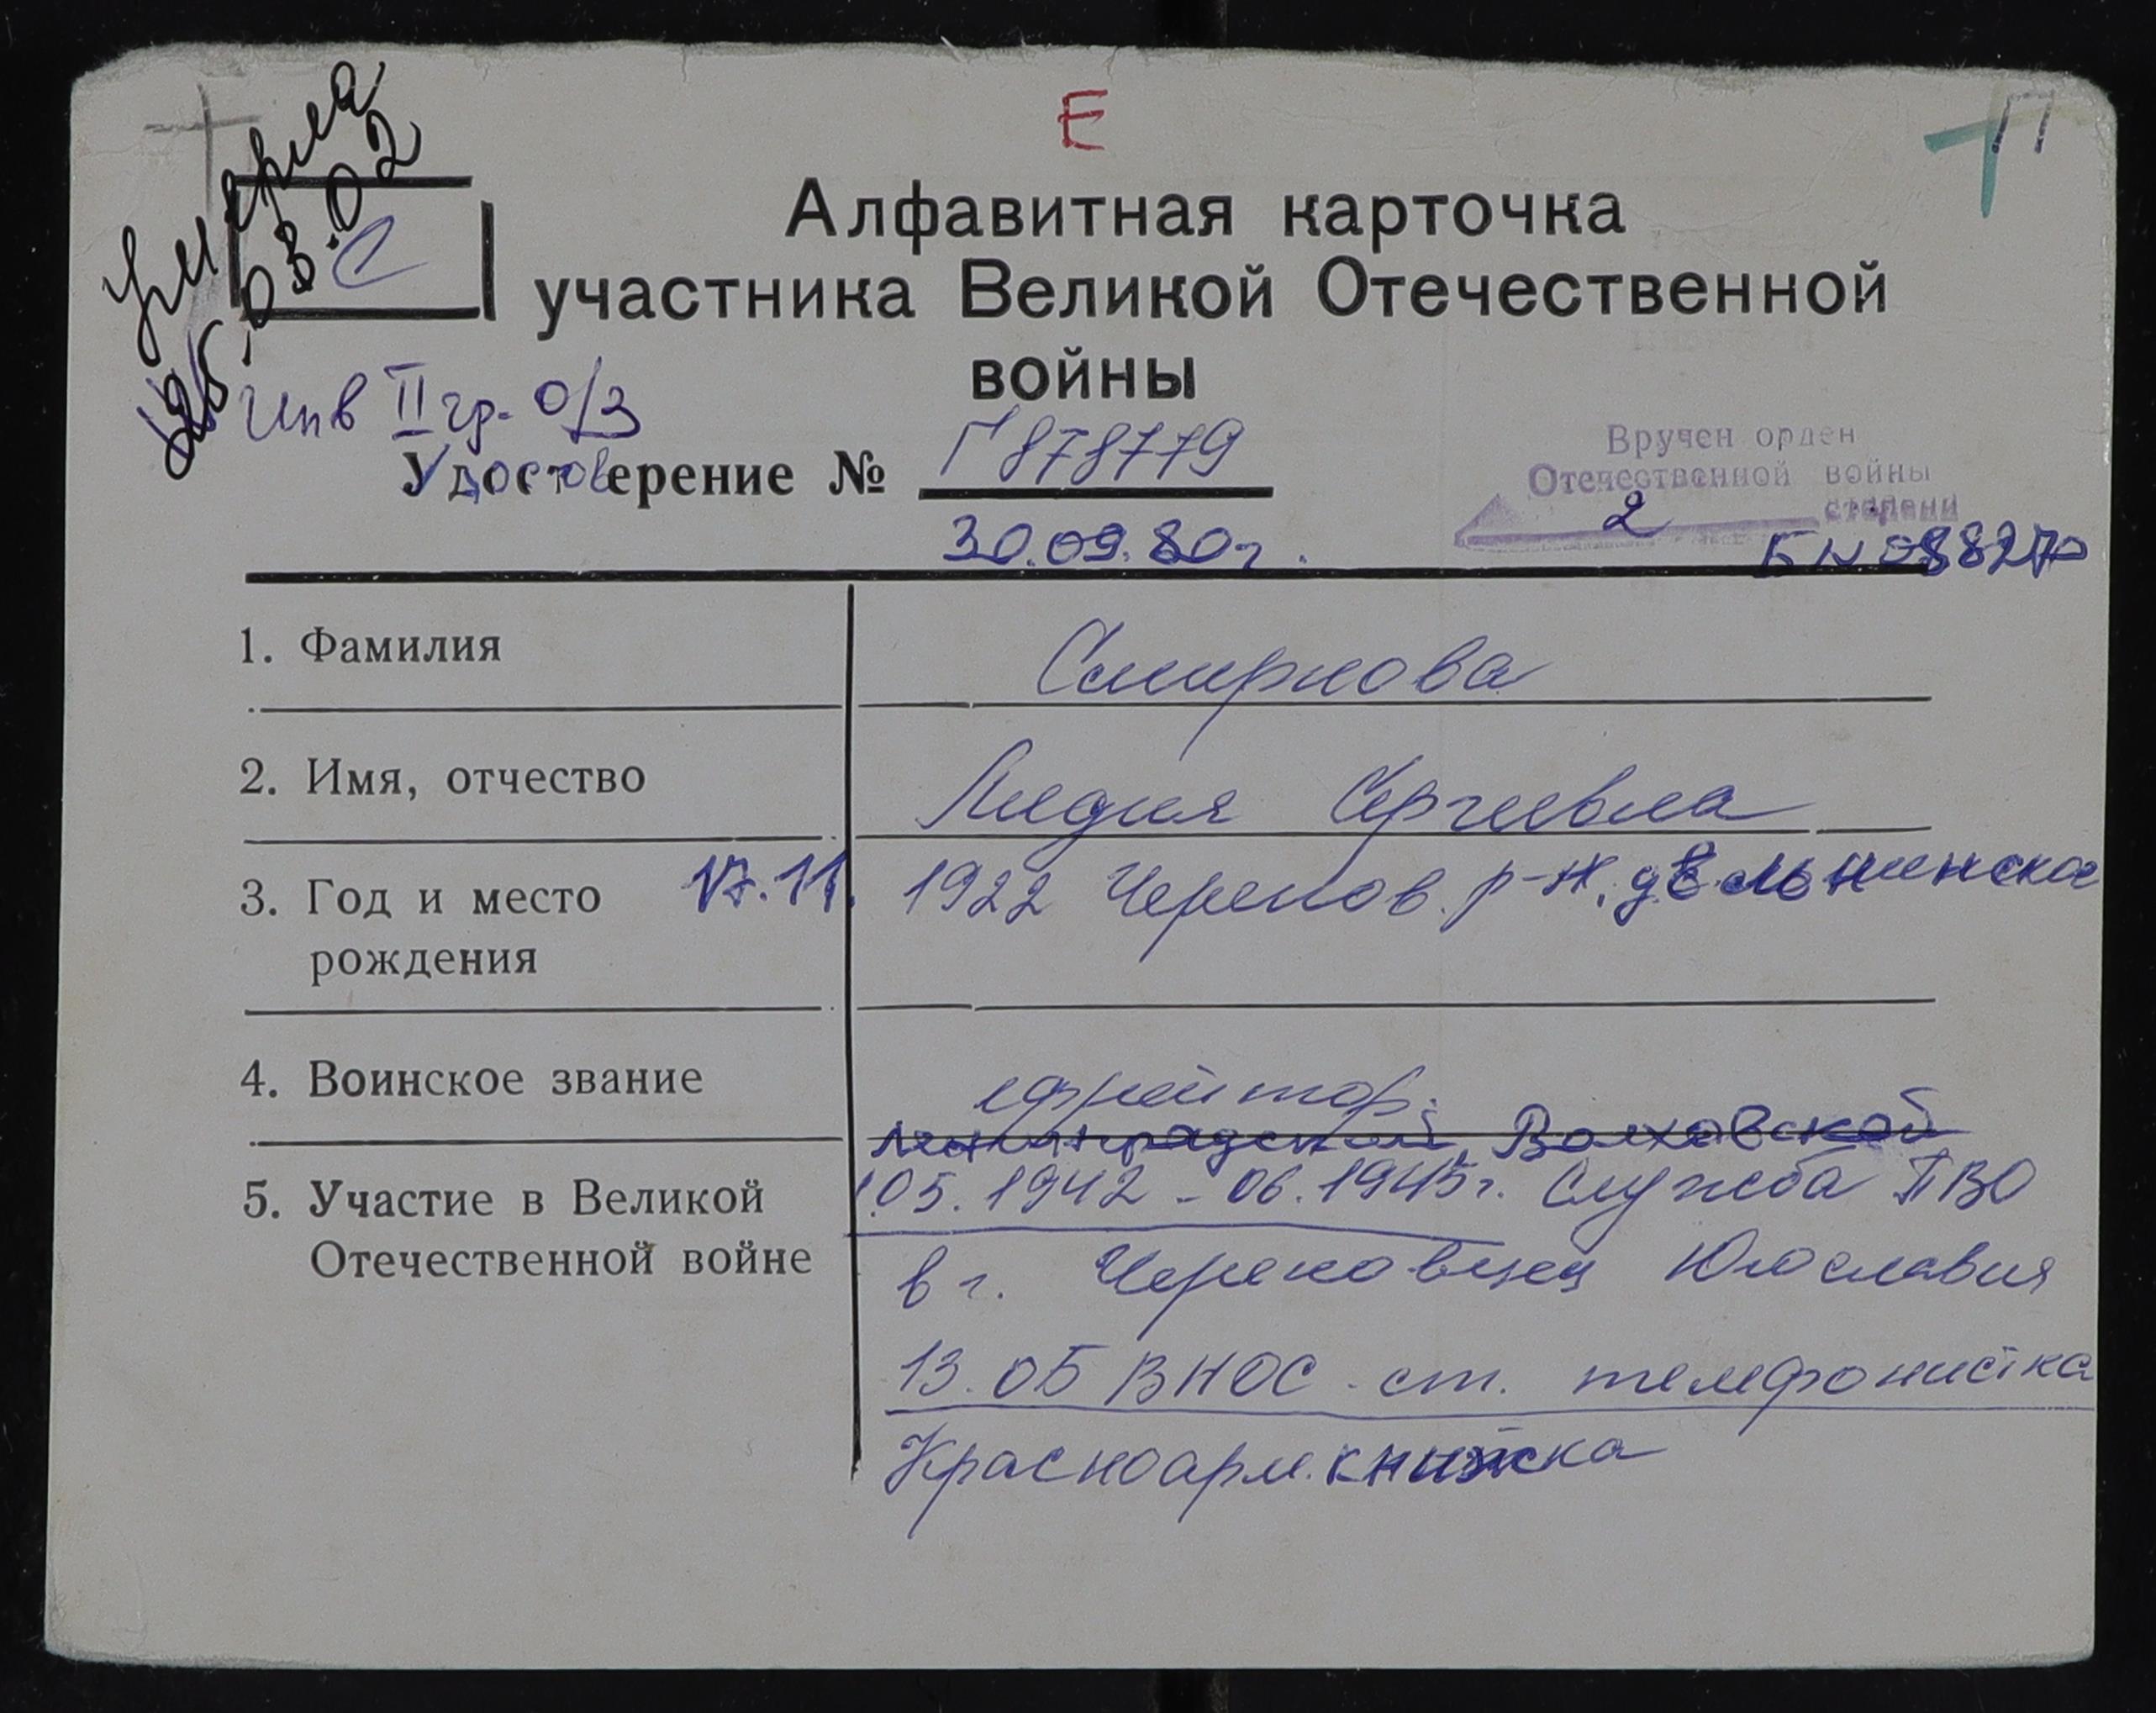 Е
П
умерла
25.03.02
С
Алфавитная карточка
участника Великой Отечественной
войны
Инв II гр. о/з
Удостов
Удостоверение № Г 878779
30.09.80г.
Вручен орден
Отечественной войны
2 степени
1. Фамилия Смирнова
2. Имя, отчество Лидия Сергеевна
3. Год и место 17.11. 1922 Черепов. р-н.
рождения
4. Воинское звание ефрейтор.
Ленинградский Волховской
5. Участие в Великой 05.1942 - 06.1945г. Служба ПВО
Отечественной войне в г. Череповец Югославия
13 ОБ ВНОС ст. телефонистка
Красноарм. книжка